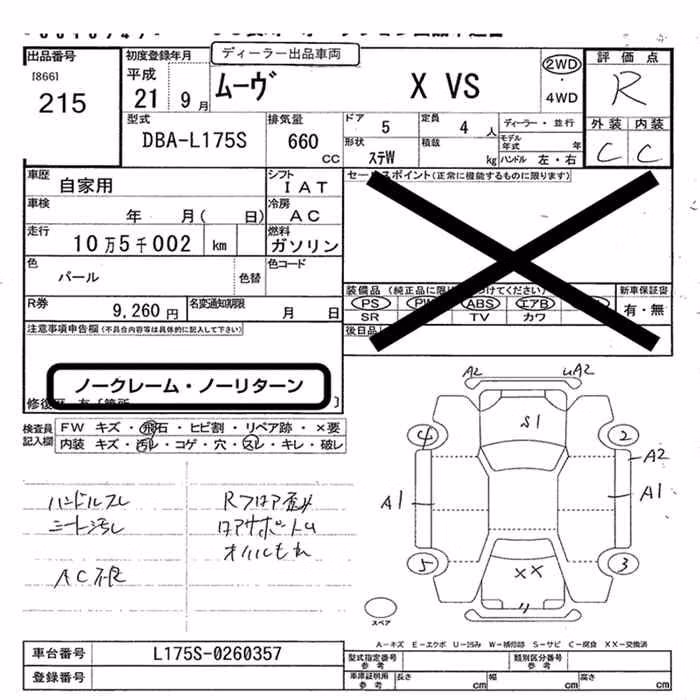 出品番号
[866]
215
初度登録年月
平成
21 9月
ディーラー出品車両
ムーヴ X VS
2WD
・
4WD
評価点
R
外装 内装
C C
型式
DBA-L175S
排気量
660
CC
ドア 5
定員 4 人
ディーラー・並行
形状
ステW
積載
kg
モデル年式 年
ハンドル 左・右
車歴
自家用
シフト
IAT
車検
年 月( 日)
冷房
AC
走行
10万5千002 km
燃料
ガソリン
色
パール
色替
色コード
R券
9,260円
名変通知期限
月 日
セールスポイント(正常に機能するものに限ります)
PS ABS エアB
SR TV カワ
新車保証書
有・無
注意事項申告欄(不具合内容等は具体的に記入して下さい)
ノークレーム・ノーリターン
検査員記入欄
FW キズ・飛石・ヒビ割・リペア跡・×要
内装 キズ・汚レ・コゲ・穴・スレ・キレ・破レ
ハンドルスレ
シート汚レ
AC不良
Rフロア歪み
オイルもれ
A2 uA2
S1
2
A2
A1 A1
5 3
XX
スペア
A-キズ E-エクボ U-凹み W-補修跡 S-サビ C-腐食 XX-交換済
車台番号
L175S-0260357
登録番号
型式指定番号
参考
類別区分番号
参考
車庫証明用
参考
長さ cm
幅 cm
高さ cm